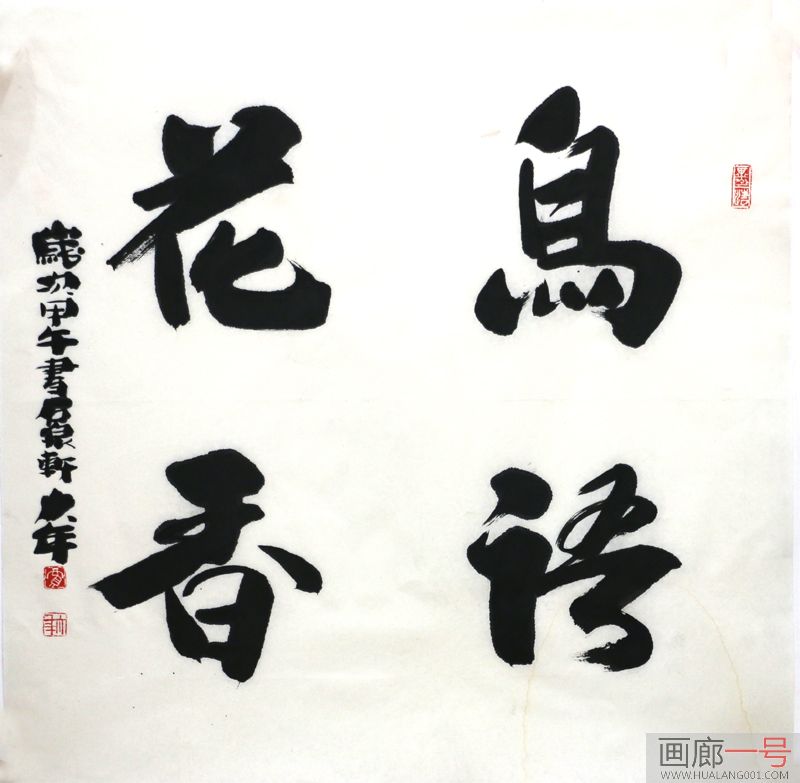 鳥語
花香
歲次甲午書於泉軒大年
画廊一号
WWW.HUALANG001.COM